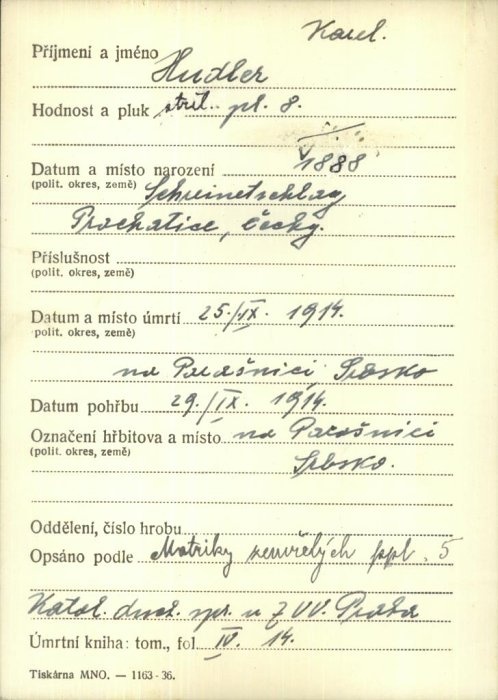 Karel.
Příjmení a jméno Hudler
Hodnost a pluk stříl. pl. 8.
Datum a místo narození 1888
(polit. okres, země) Schreinetschlag
Prachatice, Čechy.
Příslušnost
(polit. okres, země)
Datum a místo úmrtí 25./IX. 1914.
(polit. okres, země)
na Parašnici Srbsko
Datum pohřbu 29./IX. 1914.
Označení hřbitova a místo na Parašnici
(polit. okres, země)
Srbsko.
Oddělení, číslo hrobu
Opsáno podle Matriky zemřelých ppl. 5
Katol. duch. spr. u ZVV. Praha
Úmrtní kniha: tom., fol. IV. 14.
Tiskárna MNO. — 1163-36.